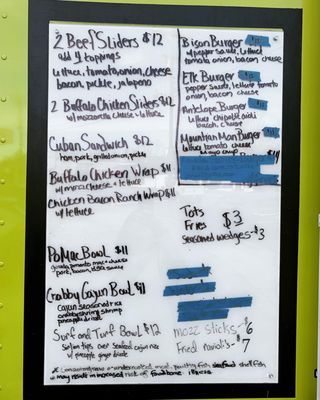 2 Beef Sliders $12
add 4 toppings
lettuce, tomato, onion, cheese
bacon, pickle, jalapeno
2 Buffalo Chicken Sliders $12
w/ mozzarella cheese + lettuce
Cuban Sandwich $12
ham, pork, grilled onion, pickle
Buffalo Chicken Wrap $11
w/ cheese + lettuce
Chicken Bacon Ranch Wrap $11
w/ lettuce
PoMac Bowl $11
gouda tomato mac + cheese
pork, bacon, sauce
Crabby Cajun Bowl $11
Cajun seasoned rice
crabby shrimp
pineapple
Surf and Turf Bowl $12
Sirloin tips over seafood cajun rice
w/ pineapple ginger drizzle
Bison Burger
w/ pepper sauce, lettuce
tomato, onion, bacon cheese
Elk Burger
pepper sauce, lettuce tomato
onion, bacon, cheese
Antelope Burger
lettuce chipotle aioli
bacon, cheese
Mountain Man Burger
lettuce tomato
Mayo
Tots
Fries $3
Seasoned wedges - $3
Mozz Sticks - $6
Fried Raviolis - $7
* Consuming raw or undercooked meat, poultry fish seafood shell fish
may result in increased risk of foodborne illness